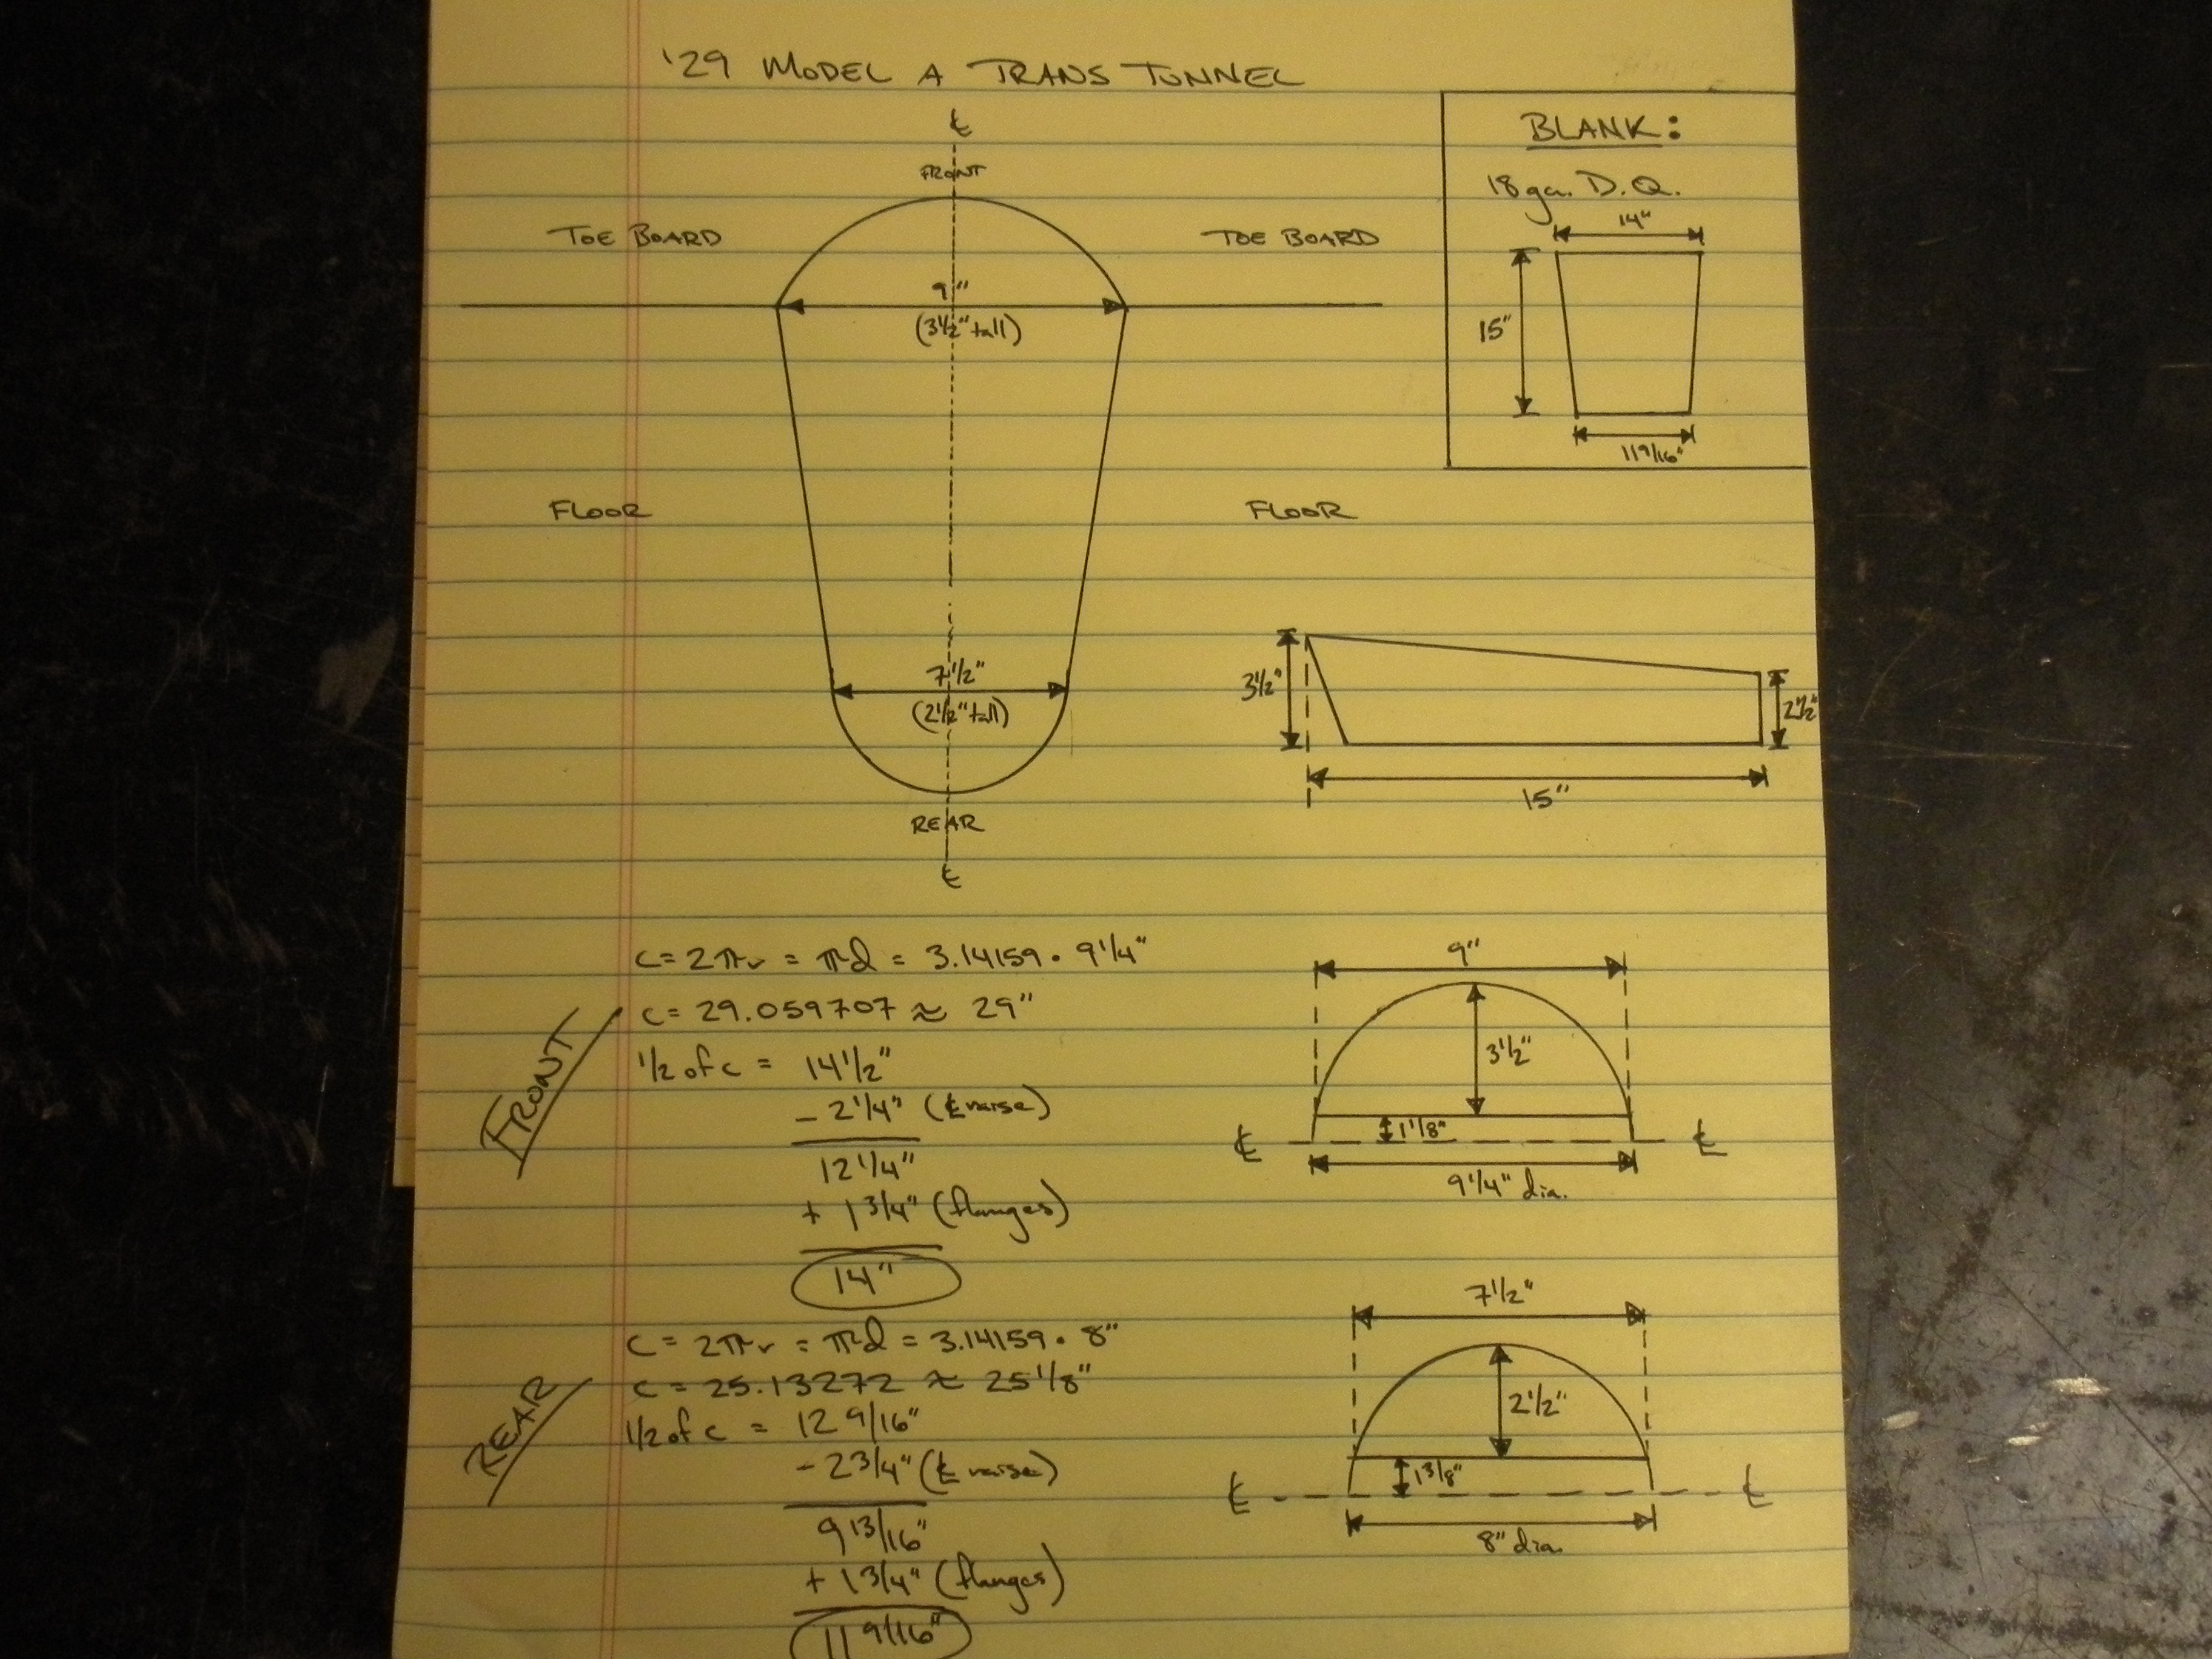 '29 MODEL A TRANS TUNNEL
℄
FRONT
TOE BOARD
TOE BOARD
9"
(3 1/2" tall)
FLOOR
FLOOR
7 1/2"
(2 1/2" tall)
REAR
℄
BLANK:
18 ga. D.Q.
14"
15"
11 9/16"
3 1/2"
2 1/2"
15"
FRONT
C = 2πr = πd = 3.14159 · 9 1/4"
C = 29.059707 ≈ 29"
1/2 of c = 14 1/2"
- 2 1/4" (℄ raise)
12 1/4"
+ 1 3/4" (flanges)
14"
9"
3 1/2"
1 1/8"
℄ ℄
9 1/4" dia.
REAR
C = 2πr = πd = 3.14159 · 8"
C = 25.13272 ≈ 25 1/8"
1/2 of c = 12 9/16"
- 2 3/4" (℄ raise)
9 13/16"
+ 1 3/4" (flanges)
11 9/16"
7 1/2"
2 1/2"
1 3/8"
℄ ℄
8" dia.